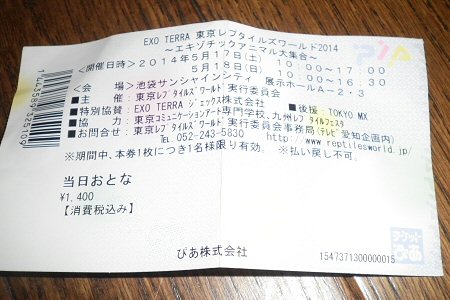 EXO TERRA 東京レプタイルズワールド2014
～エキゾチックアニマル大集合～
<開催日時> 2014年5月17日(土) 10:00～17:00
5月18日(日) 10:00～16:30
<会　場> 池袋サンシャインシティ 展示ホールA-2・3
■主　催：東京レプタイルズワールド実行委員会
■特別協賛：EXO TERRA ジェックス株式会社 ■後援：TOKYO MX
■協　力：東京コミュニケーションアート専門学校、九州レプタイルフェスタ
■お問合せ：東京レプタイルズワールド実行委員会事務局(テレビ愛知企画内)
TEL 052-243-5830 http://www.reptilesworld.jp/
※期間中、本券1枚につき1名様限り有効。 ※払い戻し不可。
当日おとな
¥1,400
【消費税込み】
ぴあ株式会社
PIA
チケットぴあ
1547371300000015